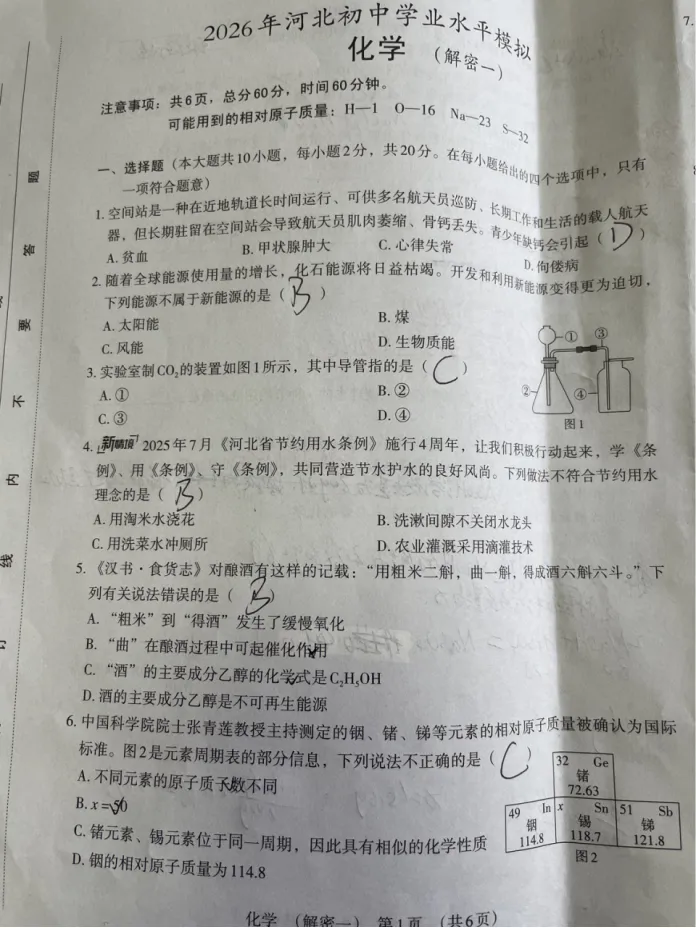 2026年河北初中学业水平模拟
化学 (解密一)
注意事项：共6页，总分60分，时间60分钟。
可能用到的相对原子质量：H—1 O—16 Na—23 S—32
一、选择题（本大题共10小题，每小题2分，共20分。在每小题给出的四个选项中，只有
一项符合题意）
1. 空间站是一种在近地轨道长时间运行、可供多名航天员巡防、长期工作和生活的载人航天
器，但长期驻留在空间站会导致航天员肌肉萎缩、骨钙丢失。青少年缺钙会引起（ D ）
A. 贫血 B. 甲状腺肿大 C. 心律失常 D. 佝偻病
2. 随着全球能源使用量的增长，化石能源将日益枯竭。开发和利用新能源变得更为迫切，
下列能源不属于新能源的是（ B ）
A. 太阳能 B. 煤
C. 风能 D. 生物质能
3. 实验室制CO₂的装置如图1所示，其中导管指的是（ C ）
A. ① B. ②
C. ③ D. ④
① ③
② ④
图1
4. 新情境 2025年7月《河北省节约用水条例》施行4周年，让我们积极行动起来，学《条
例》、用《条例》、守《条例》，共同营造节水护水的良好风尚。下列做法不符合节约用水
理念的是（ B ）
A. 用淘米水浇花 B. 洗漱间隙不关闭水龙头
C. 用洗菜水冲厕所 D. 农业灌溉采用滴灌技术
5. 《汉书·食货志》对酿酒有这样的记载：“用粗米二斛，曲一斛，得成酒六斛六斗。”下
列有关说法错误的是（ ）
A. “粗米”到“得酒”发生了缓慢氧化
B. “曲”在酿酒过程中可起催化作用
C. “酒”的主要成分乙醇的化学式是C₂H₅OH
D. 酒的主要成分乙醇是不可再生能源
6. 中国科学院院士张青莲教授主持测定的铟、锗、锑等元素的相对原子质量被确认为国际
标准。图2是元素周期表的部分信息，下列说法不正确的是（ C ）
A. 不同元素的原子质子数不同
B. x=50
C. 锗元素、锡元素位于同一周期，因此具有相似的化学性质
D. 铟的相对原子质量为114.8
32 Ge
锗
72.63
49 In x Sn 51 Sb
铟 锡 锑
114.8 118.7 121.8
图2
化学 （解密一） 第1页 （共6页）
题
答
要
不
内
线
7.